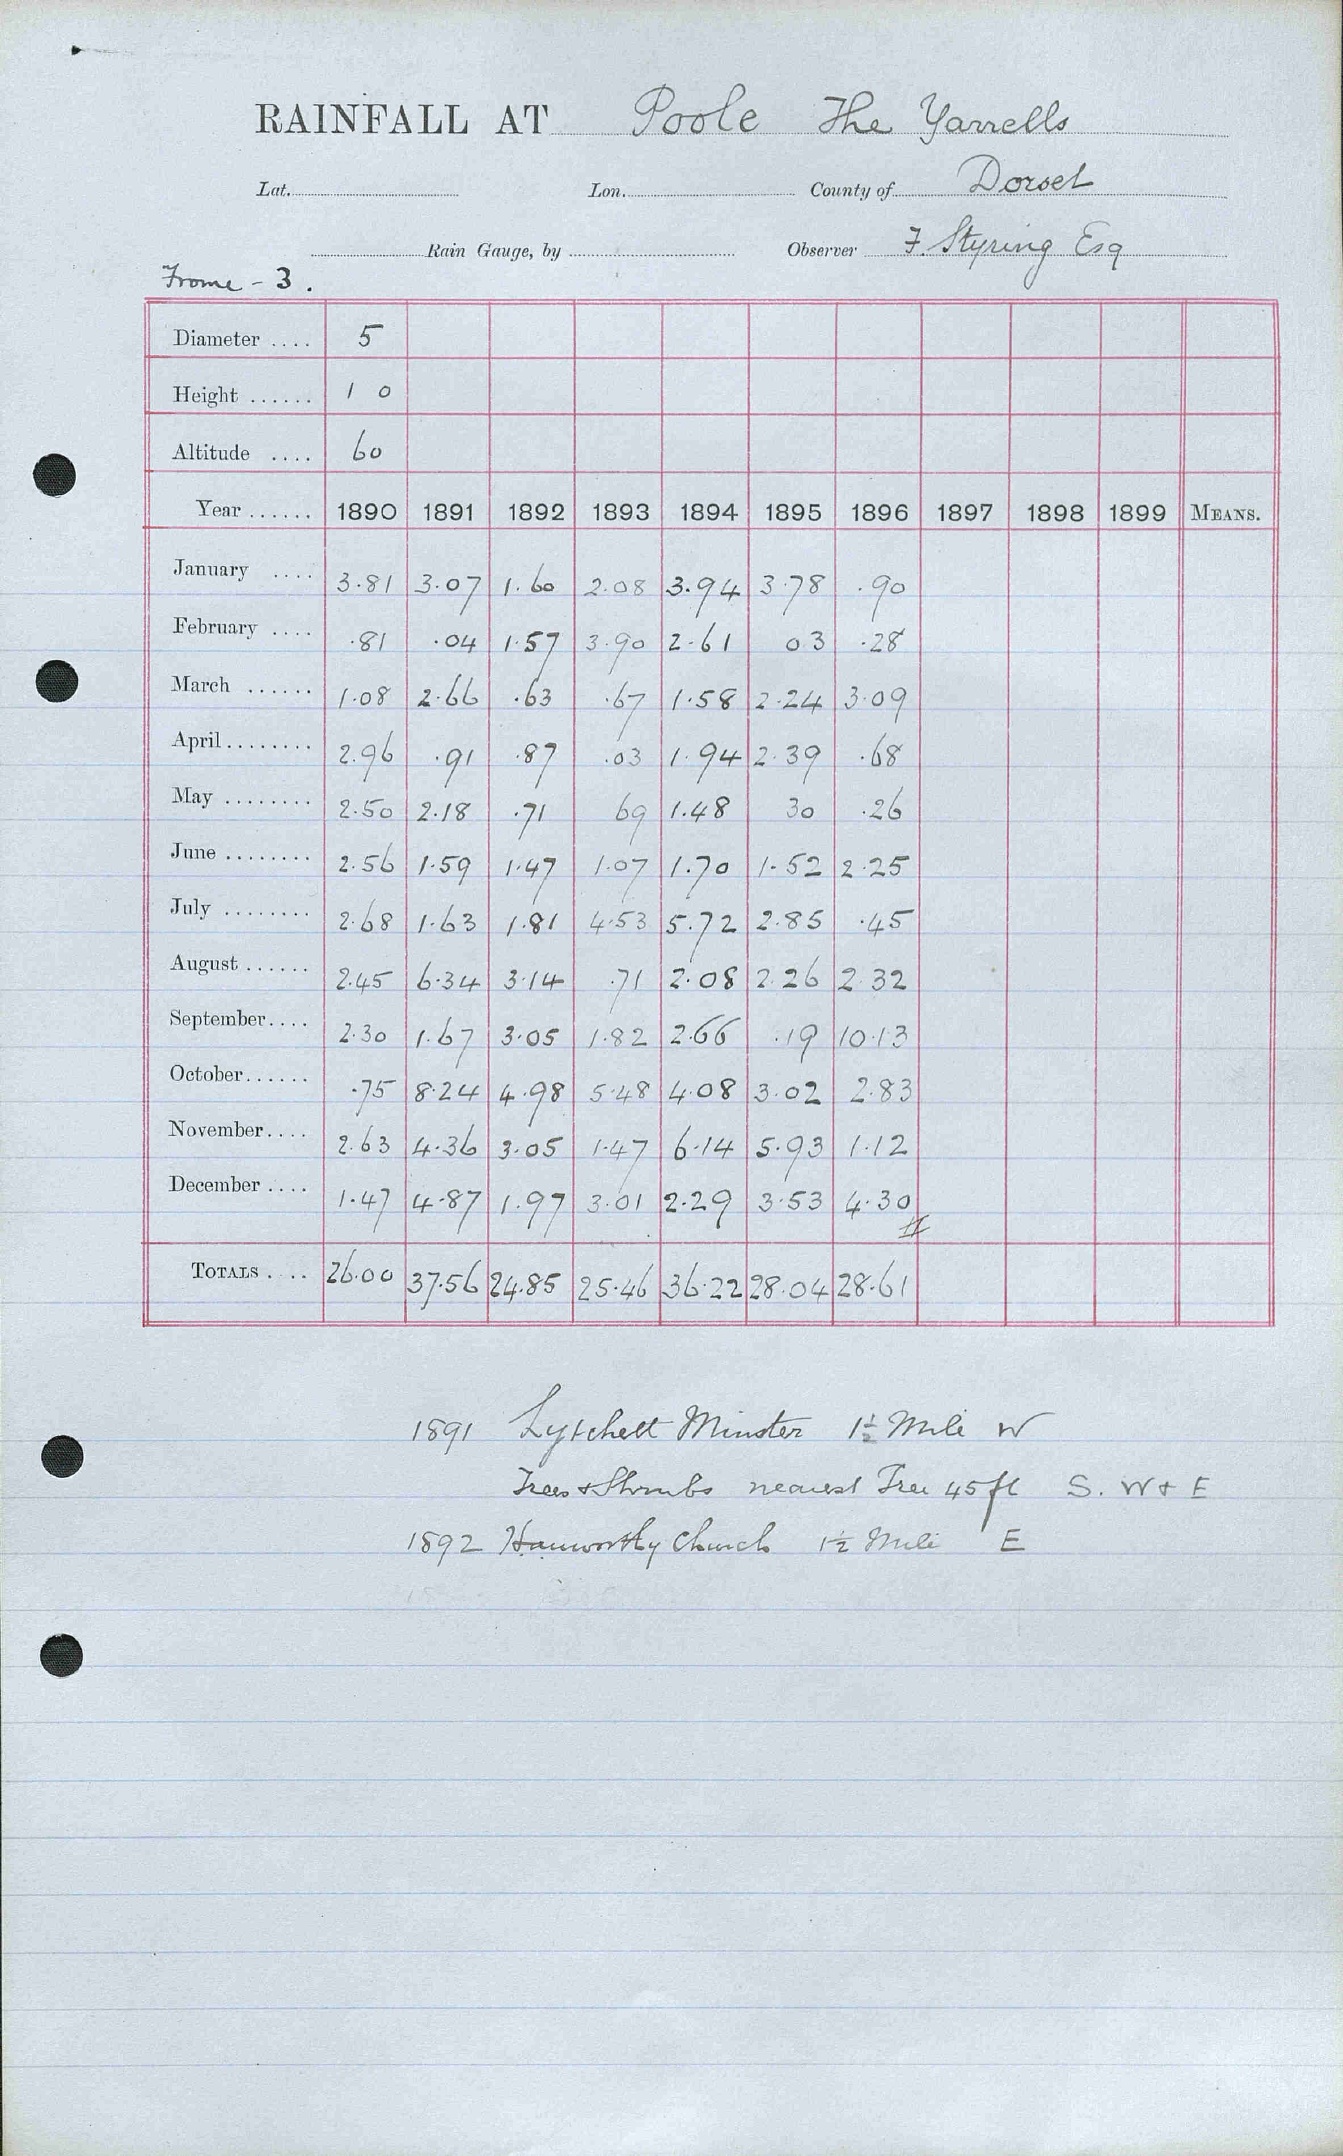 RAINFALL AT Poole The Yarrells
Lat. Lon. County of Dorset
Rain Gauge, by Observer F. Styring Esq
Frome - 3.
Diameter .... 5
Height ...... 1 0
Altitude .... 60
Year ...... 1890 1891 1892 1893 1894 1895 1896 1897 1898 1899 MEANS.
January .... 3.81 3.07 1.60 2.08 3.94 3.78 .90
February .... .81 .04 1.57 3.90 2.61 03 .28
March ...... 1.08 2.66 .63 .67 1.58 2.24 3.09
April........ 2.96 .91 .87 .03 1.94 2.39 .68
May ........ 2.50 2.18 .71 69 1.48 30 .26
June ........ 2.56 1.59 1.47 1.07 1.70 1.52 2.25
July ........ 2.68 1.63 1.81 4.53 5.72 2.85 .45
August ...... 2.45 6.34 3.14 .71 2.08 2.26 2.32
September.... 2.30 1.67 3.05 1.82 2.66 .19 10.13
October...... .75 8.24 4.98 5.48 4.08 3.02 2.83
November.... 2.63 4.36 3.05 1.47 6.14 5.93 1.12
December .... 1.47 4.87 1.97 3.01 2.29 3.53 4.30
TOTALS .... 26.00 37.56 24.85 25.46 36.22 28.04 28.61
1891 Lytchett Minster 1½ Mile W
Trees & Shrubs nearest Tree 45 ft S. W & E
1892 Hamworthy Church 1½ Mile E